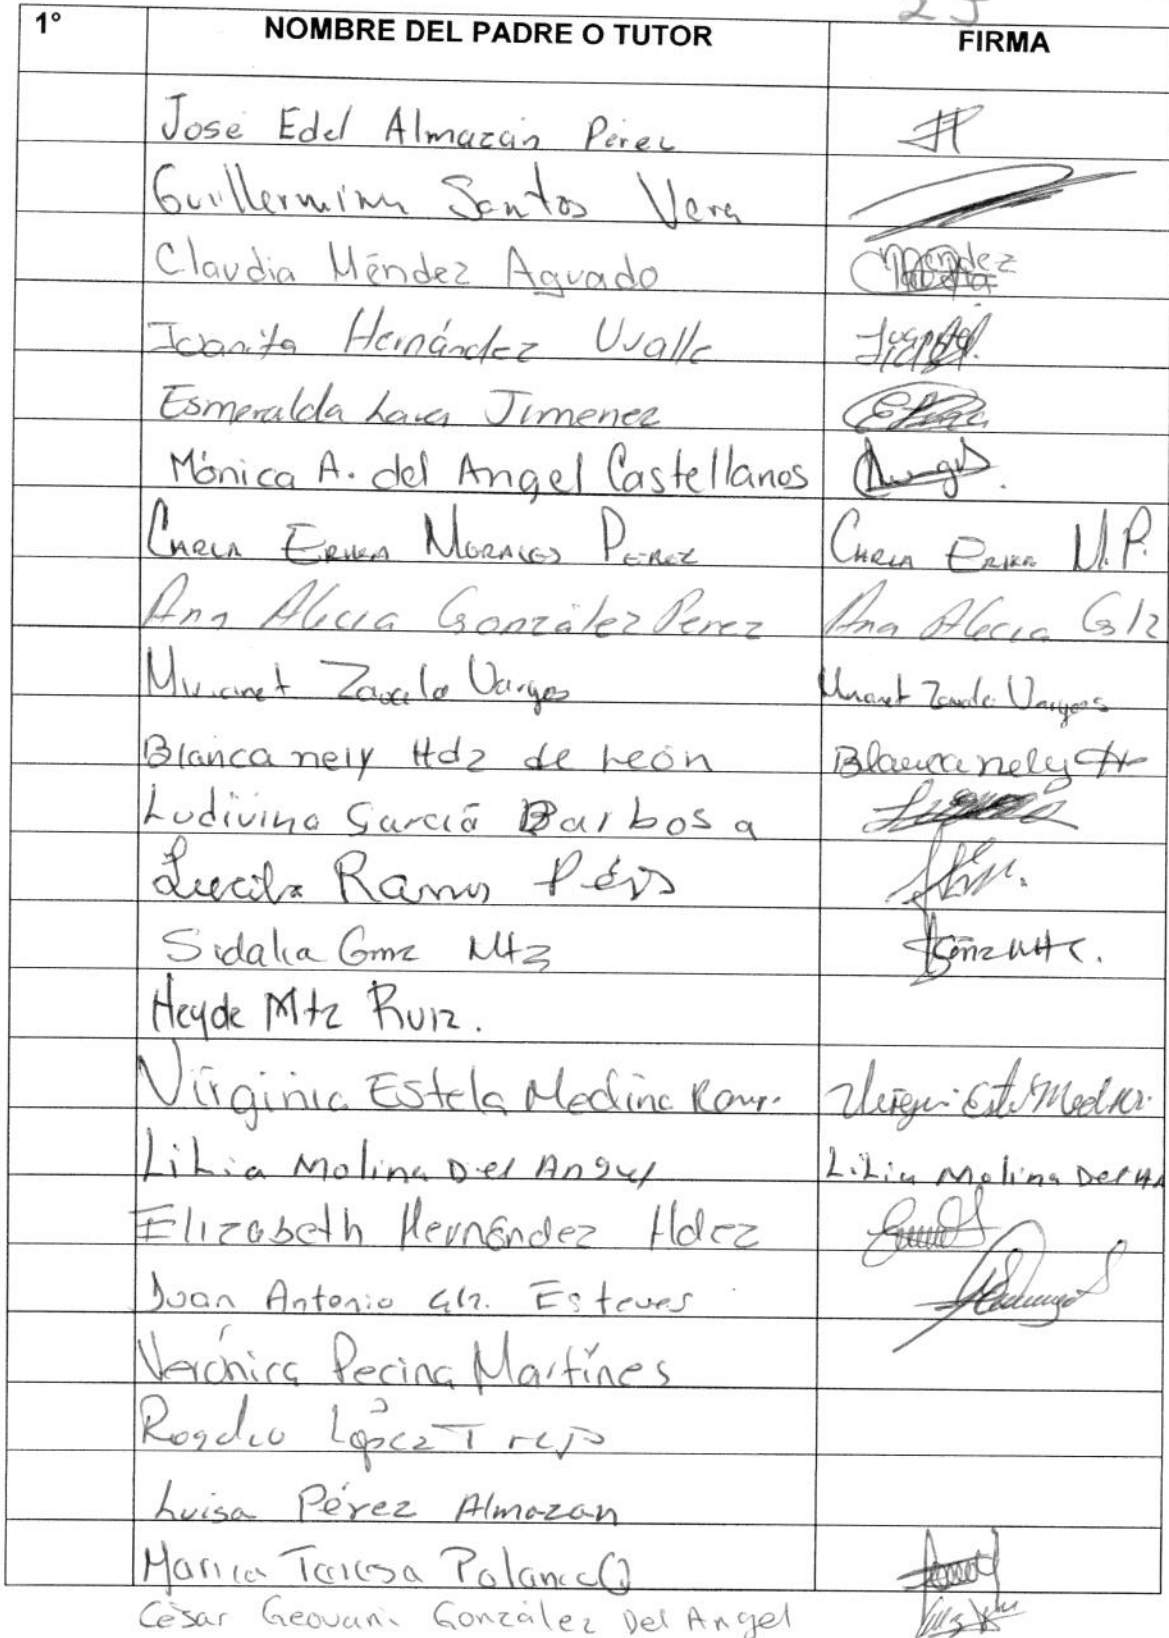 1° NOMBRE DEL PADRE O TUTOR FIRMA
José Edel Almazán Pérez
Guillermina Santos Vera
Claudia Méndez Aguado Méndez
Juanita Hernández Uvalle
Esmeralda Lara Jimenez
Mónica A. del Angel Castellanos
Carla Erika Morales Perez Carla Erika M.P.
Ana Alicia González Perez Ana Alicia Glz
Zavala Vargas Zavala Vargas
Blanca nely Hdz de León Blanca nely H
Ludivina García Barbosa
Lucila Ramos
Sidalia Gmz Mtz
Heyde Mtz Ruiz.
Virginia Estela Medina
Lilia Molina Del Angel Lilia Molina Del
Elizabeth Hernández Hdez
Juan Antonio Glz. Esteves
Verónica Pecina Martínes
López Trejo
Luisa Pérez Almazan
Teresa
César Geovani González Del Angel